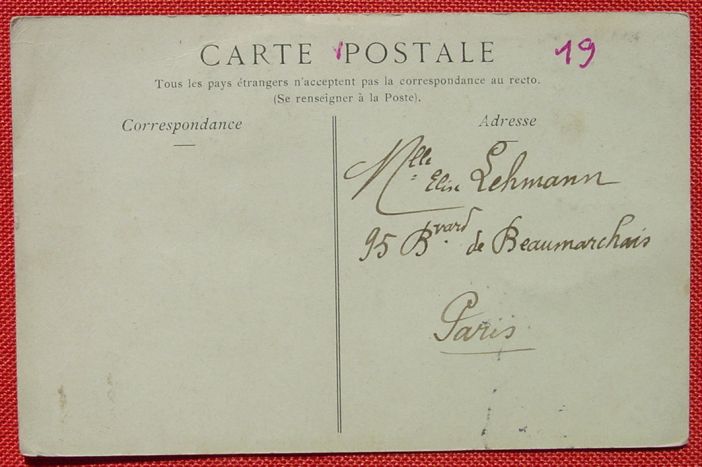 CARTE POSTALE
19
Tous les pays étrangers n'acceptent pas la correspondance au recto.
(Se renseigner à la Poste).
Correspondance
Adresse
Mlle Elise Lehmann
95 Bvard de Beaumarchais
Paris